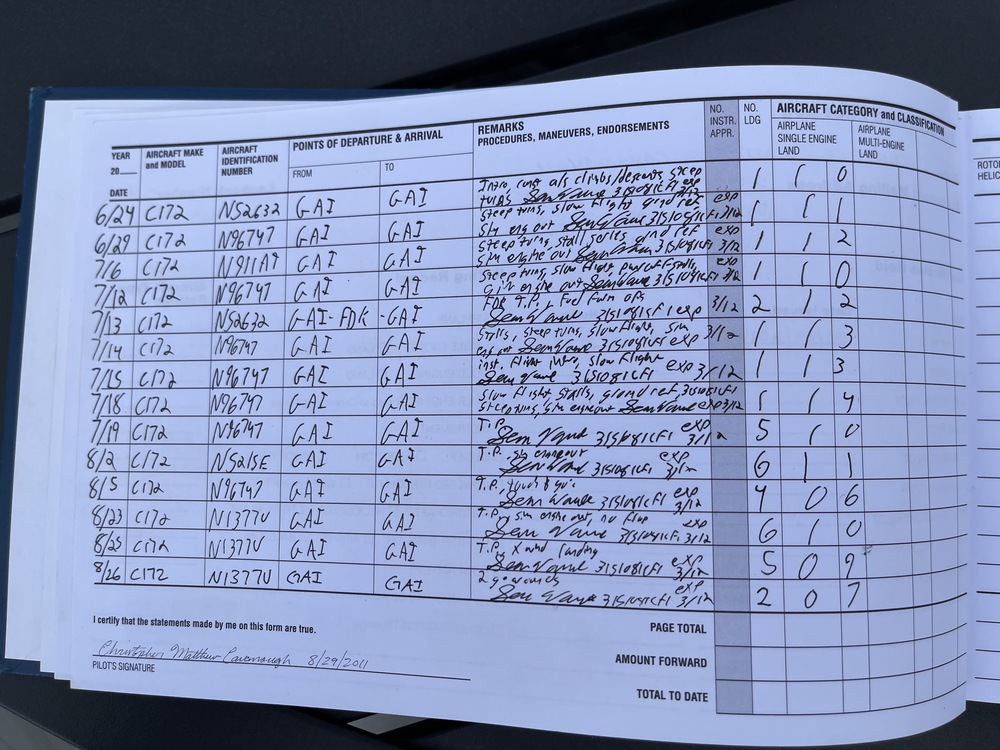 YEAR 20___ AIRCRAFT MAKE and MODEL AIRCRAFT IDENTIFICATION NUMBER POINTS OF DEPARTURE & ARRIVAL REMARKS PROCEDURES, MANEUVERS, ENDORSEMENTS NO. INSTR. APPR. NO. LDG AIRCRAFT CATEGORY and CLASSIFICATION
DATE FROM TO AIRPLANE SINGLE ENGINE LAND AIRPLANE MULTI-ENGINE LAND
ROTOR
HELIC
6/24 C172 N52632 GAI GAI Intro, climbs/descents, steep 1 1 0
turns 3151081CFI exp 3/12
6/29 C172 N96747 GAI GAI steep turns, slow flight, grnd ref exp 1 1 1
sim eng out 3151081CFI 3/12
7/6 C172 GAI GAI steep turns, stall series, grnd ref exp 1 1 2
sim engine out 3151081CFI 3/12
7/12 C172 N96747 GAI GAI steep turns, slow flight, exp 1 1 0
engine out 3151081CFI 3/12
7/13 C172 N52632 GAI-FDK -GAI T.P., 2 1 2
3151081CFI exp 3/12
7/14 C172 N96747 GAI GAI stalls, steep turns, slow flight, sim 1 1 3
eng out 3151081CFI exp 3/12
7/15 C172 N96747 GAI GAI inst. flight slow flight 1 1 3
3151081CFI exp 3/12
7/18 C172 N96747 GAI GAI slow flight stalls, ground ref, 3151081CFI 1 1 4
steep turns, sim engine out exp 3/12
7/19 C172 N96747 GAI GAI T.P. exp 5 1 0
3151081CFI 3/12
8/2 C172 N5215E GAI GAI T.P., sim engine out exp 6 1 1
3151081CFI 3/12
8/5 C172 N96747 GAI GAI T.P., touch & go's 4 0 6
3151081CFI exp 3/12
8/23 C172 N1377U GAI GAI T.P., sim engine out, no flap exp 6 1 0
3151081CFI 3/12
8/25 C172 N1377U GAI GAI T.P., x wind landing exp 5 0 9
3151081CFI 3/12
8/26 C172 N1377U GAI GAI 2 go arounds exp 2 0 7
3151081CFI 3/12
I certify that the statements made by me on this form are true. PAGE TOTAL
Christopher Matthew Cavanaugh 8/29/2011 AMOUNT FORWARD
PILOT'S SIGNATURE TOTAL TO DATE